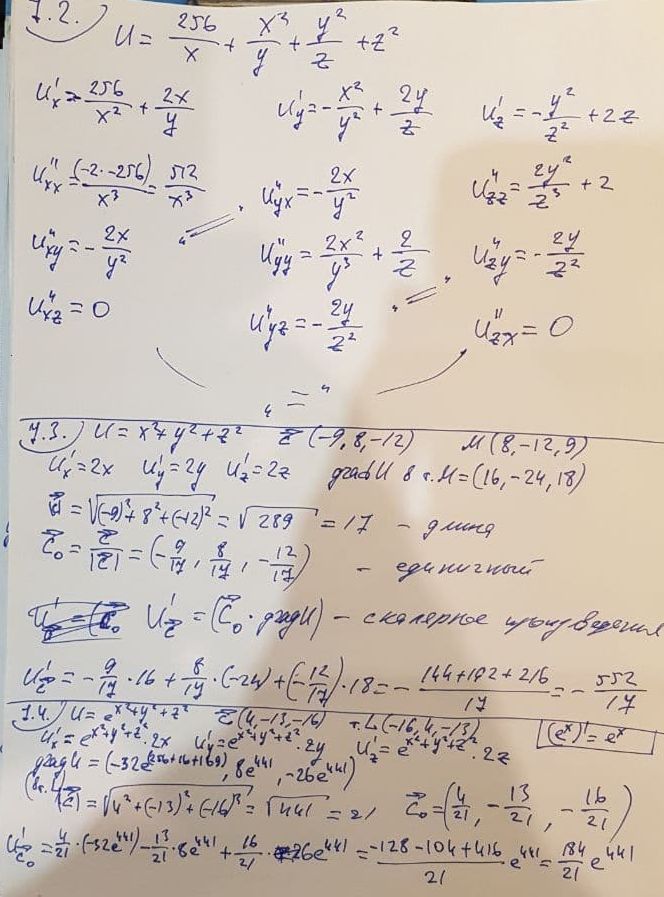 7.2.
U = 256/x + x³/y + y²/z + z²
U'x = 256/x² + 2x/y   U'y = -x²/y² + 2y/z   U'z = -y²/z² + 2z
U''xx = (-2·-256)/x³ = 512/x³   U''yx = -2x/y²   U''zz = 2y²/z³ + 2
U''xy = -2x/y²   U''yy = 2x²/y³ + 2/z   U''zy = -2y/z²
U''xz = 0   U''yz = -2y/z²   U''zx = 0
" = "
7.3. U = x²+y²+z²   c̄ (-9, 8, -12)   M (8, -12, 9)
U'x = 2x   U'y = 2y   U'z = 2z   gradU в т. M = (16, -24, 18)
= √((-9)²+8²+(-12)²) = √289 = 17 - длина
c̄₀ = c̄/|c̄| = (-9/17, 8/17, -12/17) - единичный
U'c̄ = (c̄₀ · gradU) - скалярное произведения
U'c̄ = -9/17 · 16 + 8/17 · (-24) + (-12/17) · 18 = - (144+192+216)/17 = - 552/17
7.4. U = e^(x²+y²+z²)   c̄ (4, -13, -16)   т. L (-16, 4, -13)   (eˣ)' = eˣ
U'x = e^(x²+y²+z²) · 2x   U'y = e^(x²+y²+z²) · 2y   U'z = e^(x²+y²+z²) · 2z
gradU = (-32e^(256+16+169), 8e⁴⁴¹, -26e⁴⁴¹)
(в т. L)
|c̄| = √(4²+(-13)²+(-16)²) = √441 = 21   c̄₀ = (4/21, -13/21, -16/21)
U'c̄₀ = 4/21 · (-32e⁴⁴¹) - 13/21 · 8e⁴⁴¹ + 16/21 · 26e⁴⁴¹ = (-128-104+416)/21 e⁴⁴¹ = 184/21 e⁴⁴¹